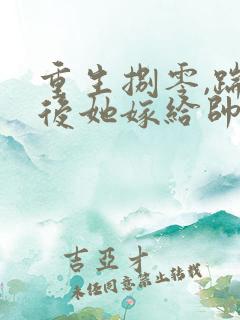 重生捌零,踹
後她嫁給帥
吉亞才
未任同意禁止轉載